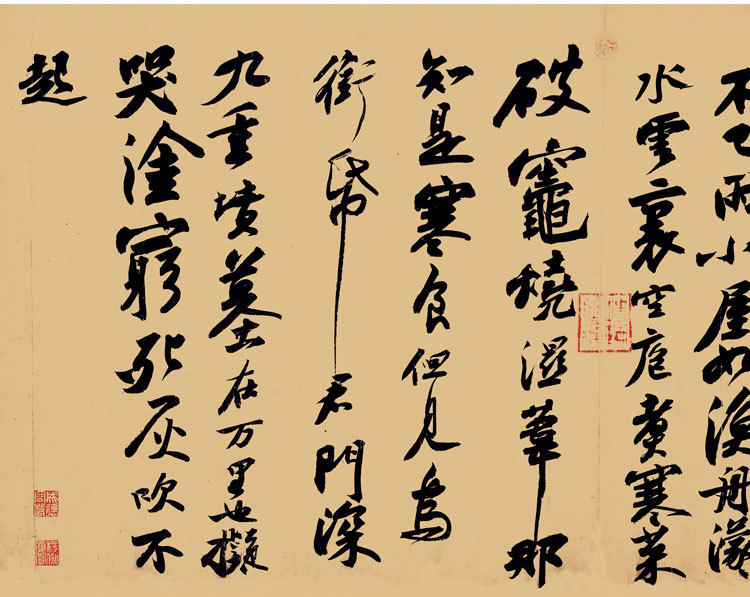 不已雨小屋如漁舟濛
水雲裏空庖煮寒菜
破竈燒濕葦那
知是寒食但見烏
銜帋君門深
九重墳墓在万里也擬
哭塗窮死灰吹不
起